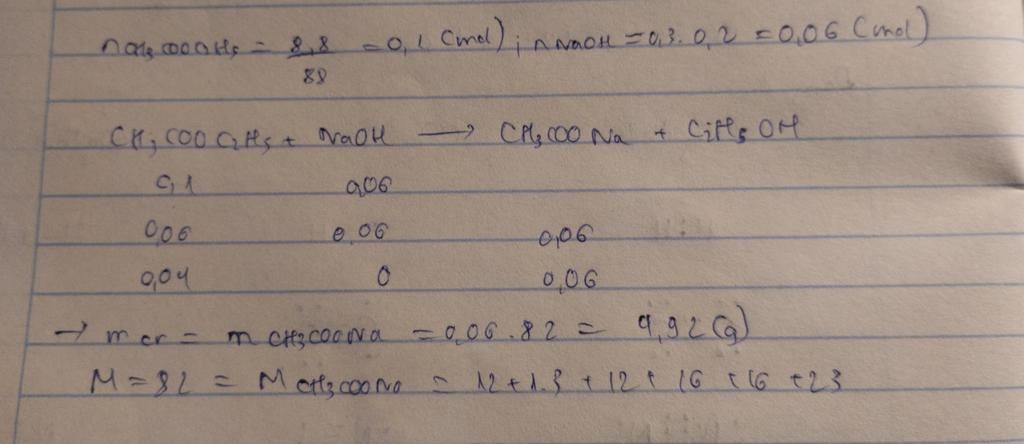 nCH3COOC2H5 = 8,8/88 = 0,1 (mol) ; nNaOH = 0,3 . 0,2 = 0,06 (mol)
CH3COOC2H5 + NaOH → CH3COONa + C2H5OH
0,1 0,06
0,06 0,06 0,06
0,04 0 0,06
→ m cr = m CH3COONa = 0,06 . 82 = 4,92 (g)
M = 82 = M CH3COONa = 12 + 1.3 + 12 + 16 + 16 + 23